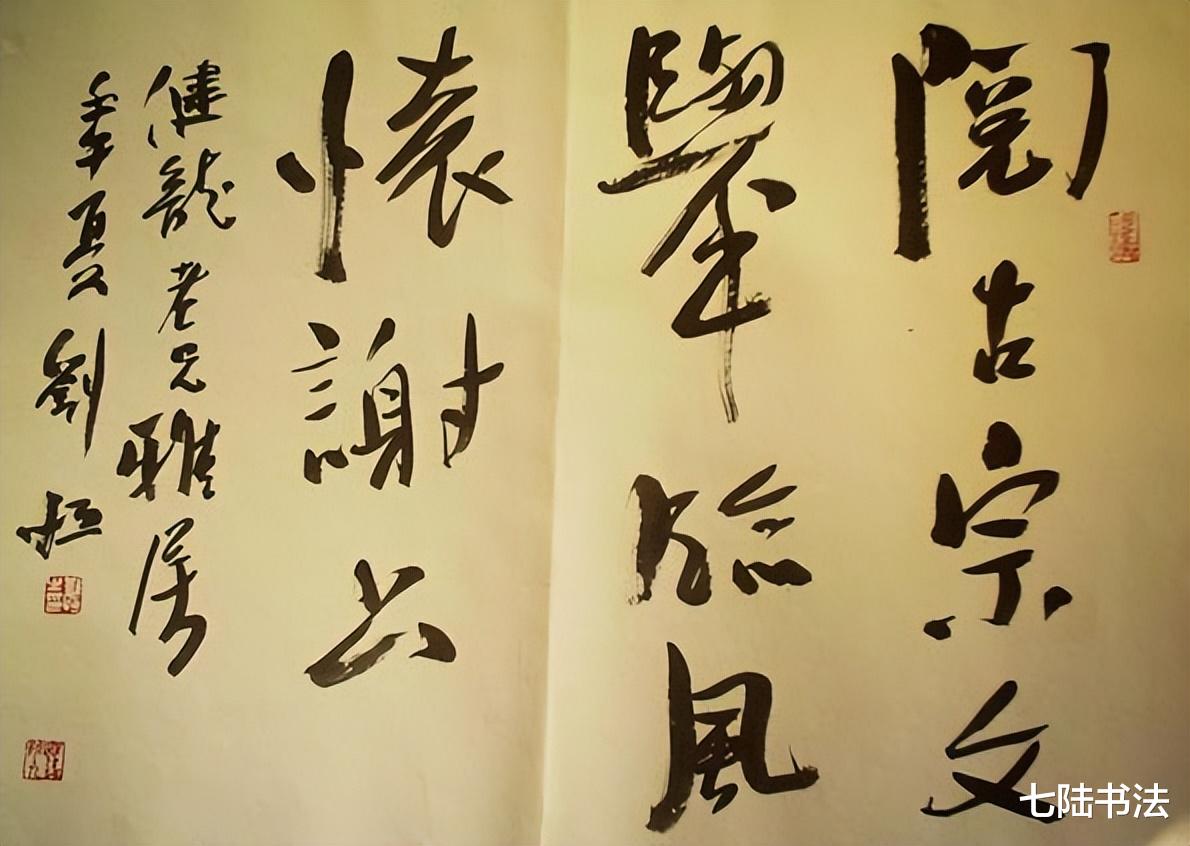 閱古宗文
舉臨風
懷謝公
健龍老兄雅屬
季夏劉恒
七陆书法